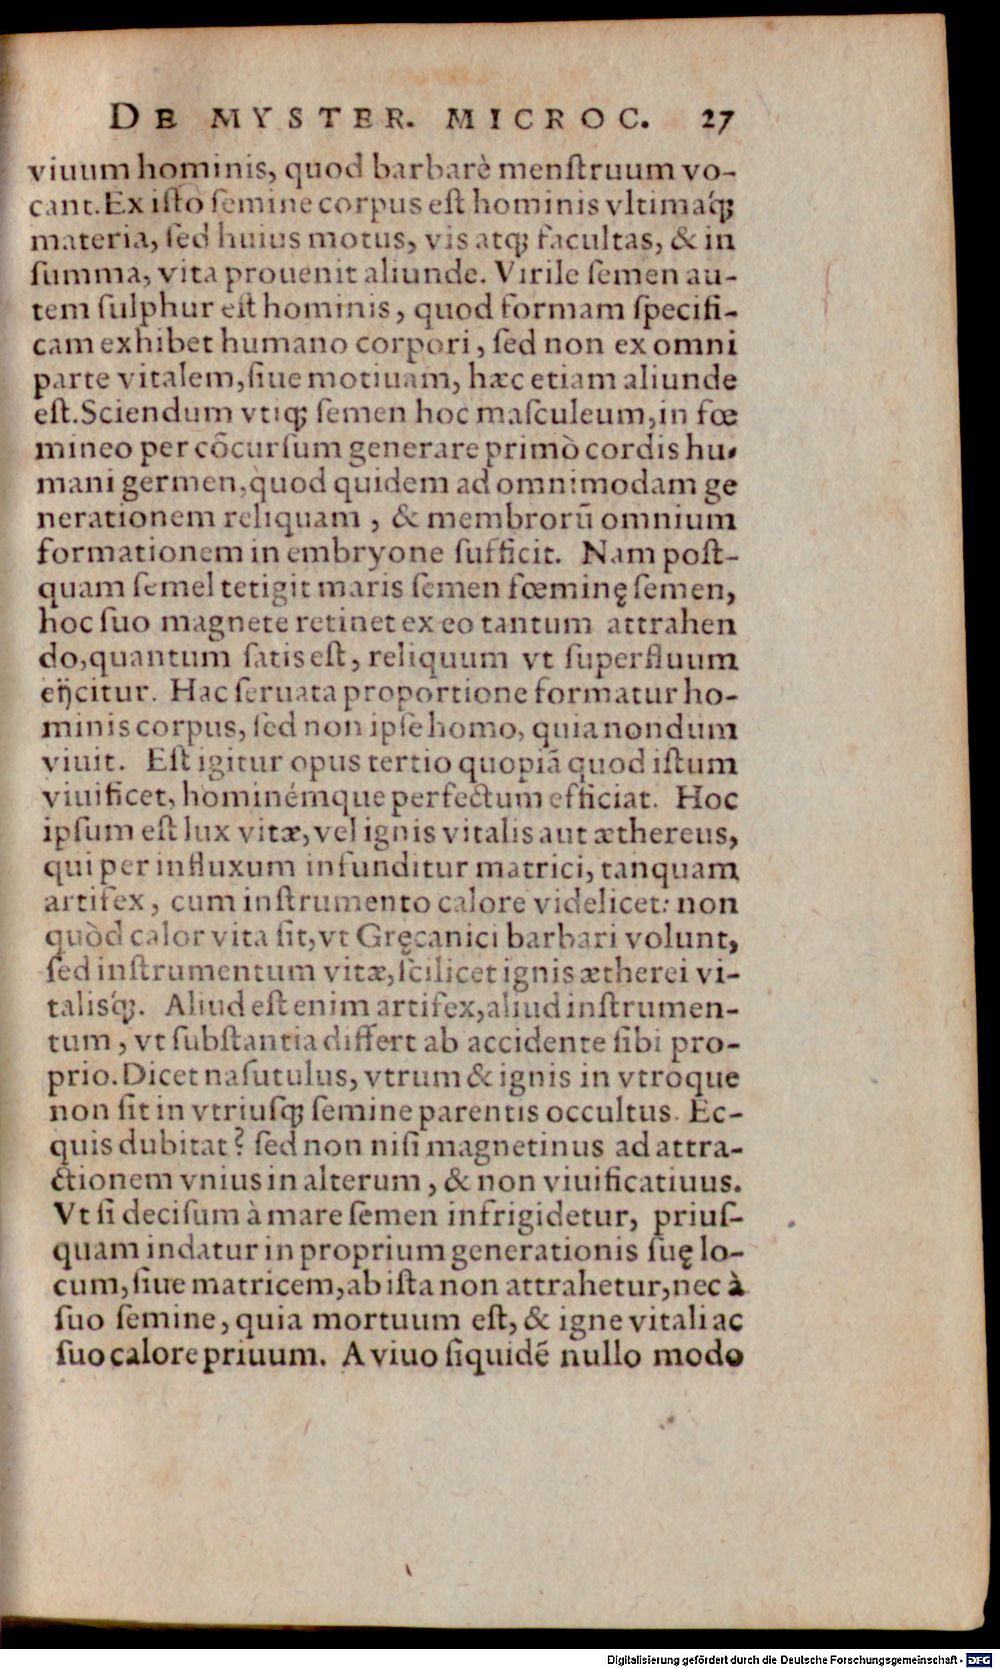 DE MYSTER. MICROC. 27
viuum hominis, quod barbarè menſtruum vo-
cant. Ex iſto ſemine corpus eſt hominis vltimaq́;
materia, ſed huius motus, vis atq; facultas, & in
ſumma, vita prouenit aliunde. Virile ſemen au-
tem ſulphur eſt hominis, quod formam ſpecifi-
cam exhibet humano corpori, ſed non ex omni
parte vitalem, ſiue motiuam, hæc etiam aliunde
eſt. Sciendum vtiq; ſemen hoc maſculeum, in fœ
mineo per cõcurſum generare primò cordis hu-
mani germen, quod quidem ad omnimodam ge
nerationem reliquam, & membrorũ omnium
formationem in embryone ſufficit. Nam poſt-
quam ſemel tetigit maris ſemen fœminę ſemen,
hoc ſuo magnete retinet ex eo tantum attrahen
do, quantum ſatis eſt, reliquum vt ſuperfluum
eijcitur. Hac ſeruata proportione formatur ho-
minis corpus, ſed non ipſe homo, quia nondum
viuit. Eſt igitur opus tertio quopiã quod iſtum
viuificet, hominémque perfectum efficiat. Hoc
ipſum eſt lux vitæ, vel ignis vitalis aut æthereus,
qui per influxum infunditur matrici, tanquam
artifex, cum inſtrumento calore videlicet: non
quòd calor vita ſit, vt Gręcanici barbari volunt,
ſed inſtrumentum vitæ, ſcilicet ignis ætherei vi-
talisq́;. Aliud eſt enim artifex, aliud inſtrumen-
tum, vt ſubſtantia differt ab accidente ſibi pro-
prio. Dicet naſutulus, vtrum & ignis in vtroque
non ſit in vtriuſq; ſemine parentis occultus. Ec-
quis dubitat? ſed non niſi magnetinus ad attra-
ctionem vnius in alterum, & non viuificatiuus.
Vt ſi deciſum à mare ſemen infrigidetur, priuſ-
quam indatur in proprium generationis ſuę lo-
cum, ſiue matricem, ab iſta non attrahetur, nec à
ſuo ſemine, quia mortuum eſt, & igne vitali ac
ſuo calore priuum. A viuo ſiquidẽ nullo modo
Digitalisierung gefördert durch die Deutsche Forschungsgemeinschaft - DFG